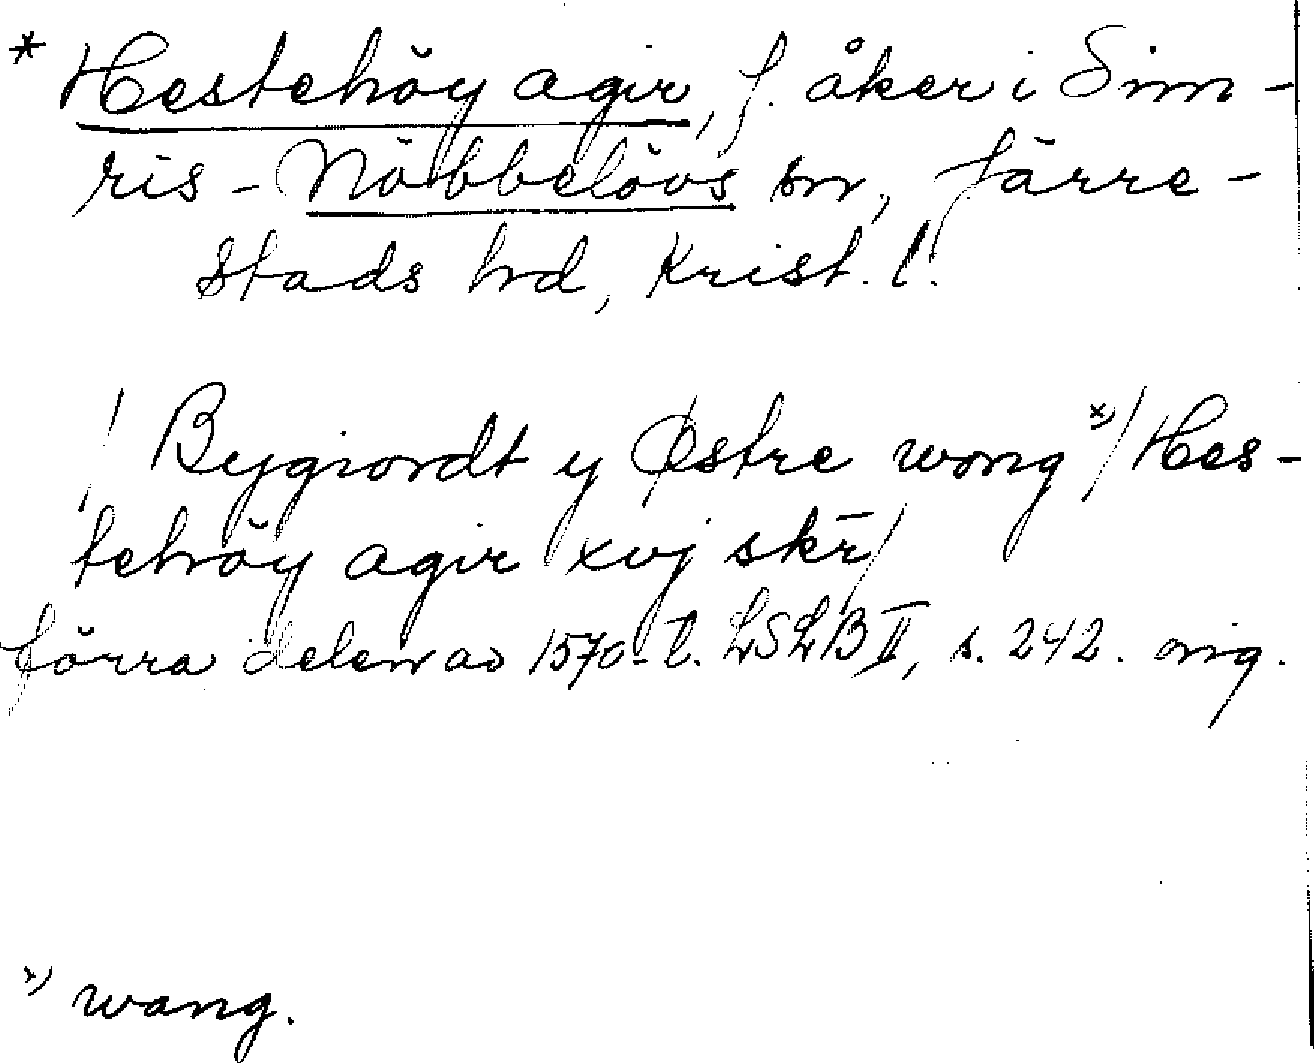 * Hestehöy agir, f. åker i Sim-
ris-Nöbbelövs sn, Järre-
stads hd, Krist. l.
/ Bygiordt y Østre wong x)/ Hes-
tehöy agir xvj skr̄/
förra delen av 1570-t. LSLB II, s. 242. orig.
x) wang.